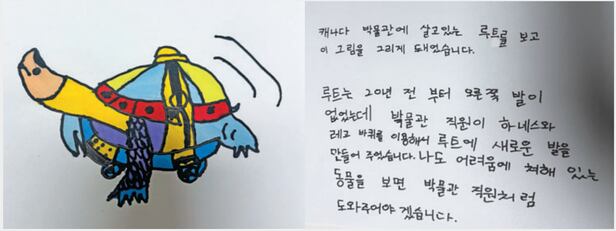 캐나다 박물관에 살고있는 루트를 보고
이 그림을 그리게 돼었습니다.
루트는 20년 전 부터 오른쪽 발이
없었는데 박물관 직원이 하네스와
레고 바퀴를 이용해서 루트에 새로운 발을
만들어 주었습니다. 나도 어려움에 쳐해 있는
동물을 보면 박물관 직원처럼
도와주어야 겠습니다.